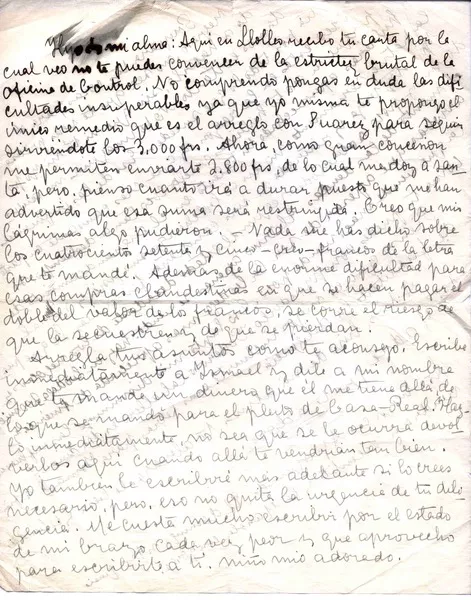 Hijo de mi alma: Aquí en Llolleo recibo tu carta por la
cual veo no te puedes convencer de la estrictez brutal de la
Oficina de Control. No comprendo pongas en duda las difi
cultades insuperables ya que yo misma te propongo el
único remedio que es el arreglo con Suarez para seguir
sirviéndote los 3.000 frs. Ahora, como gran concesión
me permiten enviarte 2.800 frs, de lo cual me doy a san
ta, pero, pienso cuanto irá a durar puesto que me han
advertido que esa suma será restringida. Creo que mis
lágrimas algo pudieron. - Nada me has dicho sobre
los cuatrocientos setenta y cinco - creo - francos de la letra
que te mandé. Además de la enorme dificultad para
esas compras clandestinas en que se hacen pagar el
doble del valor de los francos, se corre el riesgo de
que la secuestren y de que se pierdan.
Arregla tus asuntos como te aconsejo. Escribe
inmediatamente a Ismael y dile a mi nombre
que te mande un dinero que él me tiene allá de
lo que se mandó para el pleito de Casa-Real. Haz
lo inmediatamente, no sea que se le ocurra devol
verlos aquí cuando allá te vendrían tan bien.
Yo tambien le escribiré más adelante si lo crees
necesario, pero, eso no quita la urgencia de tu dili
gencia. Me cuesta mucho escribir por el estado
de mi brazo, cada vez peor y que aprovecho
para escribirte a ti, niño mio adorado.